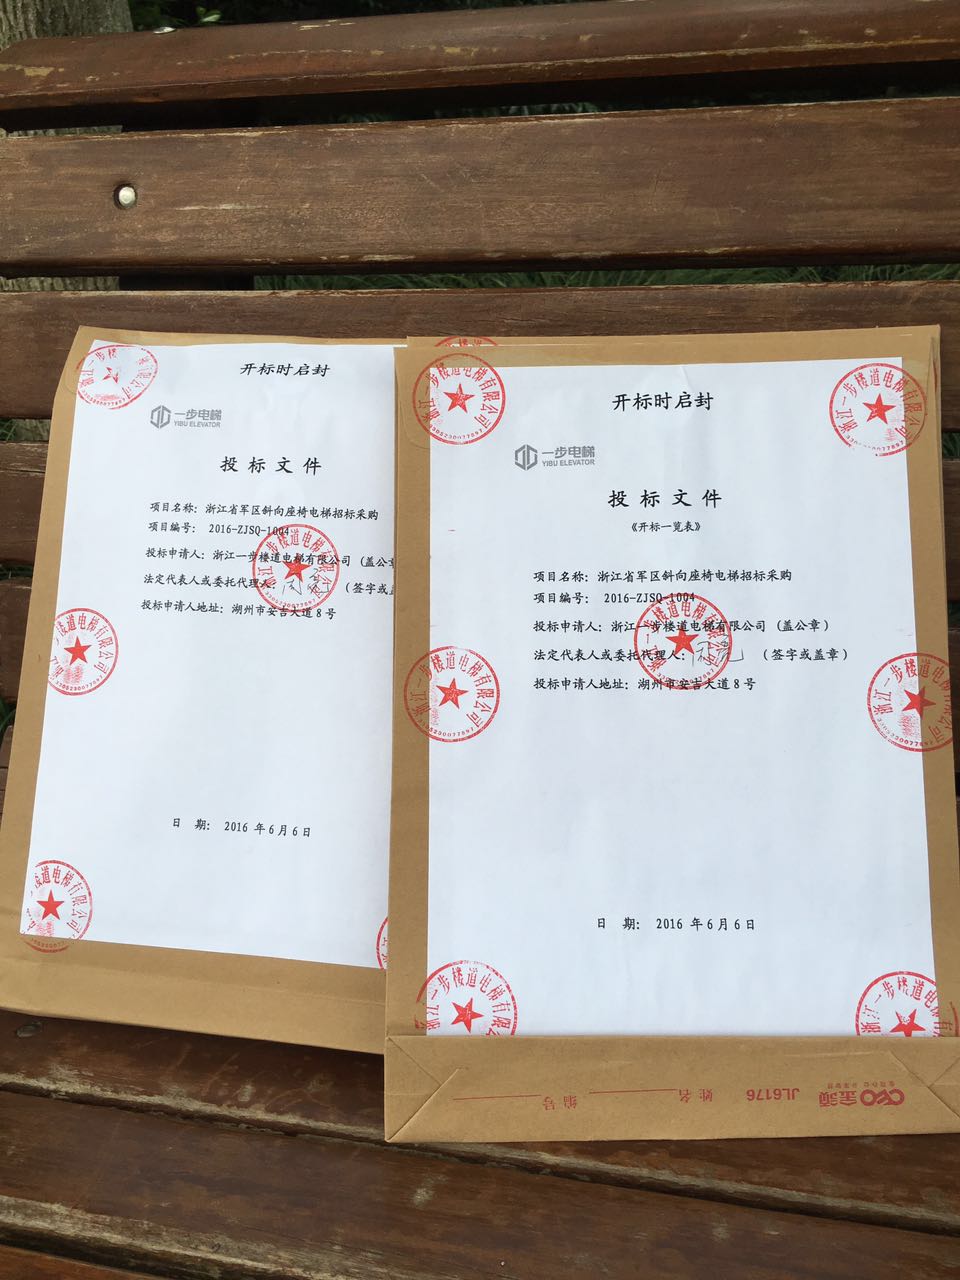 开标时启封
一步电梯
YIBU ELEVATOR
投标文件
项目名称：浙江省军区斜向座椅电梯招标采购
项目编号：2016-ZJSQ-1004
投标申请人：浙江一步楼道电梯有限公司（盖公章
法定代表人或委托代理人：（签字或盖
投标申请人地址：湖州市安吉大道8号
日 期：2016 年6月6日
开标时启封
一步电梯
YIBU ELEVATOR
投标文件
《开标一览表》
项目名称：浙江省军区斜向座椅电梯招标采购
项目编号：2016-ZJSQ-1004
投标申请人：浙江一步楼道电梯有限公司（盖公章）
法定代表人或委托代理人：（签字或盖章）
投标申请人地址：湖州市安吉大道8号
日 期：2016 年6月6日
浙江一步楼道电梯有限公司
3305230077697
JL6176 姓名 编号